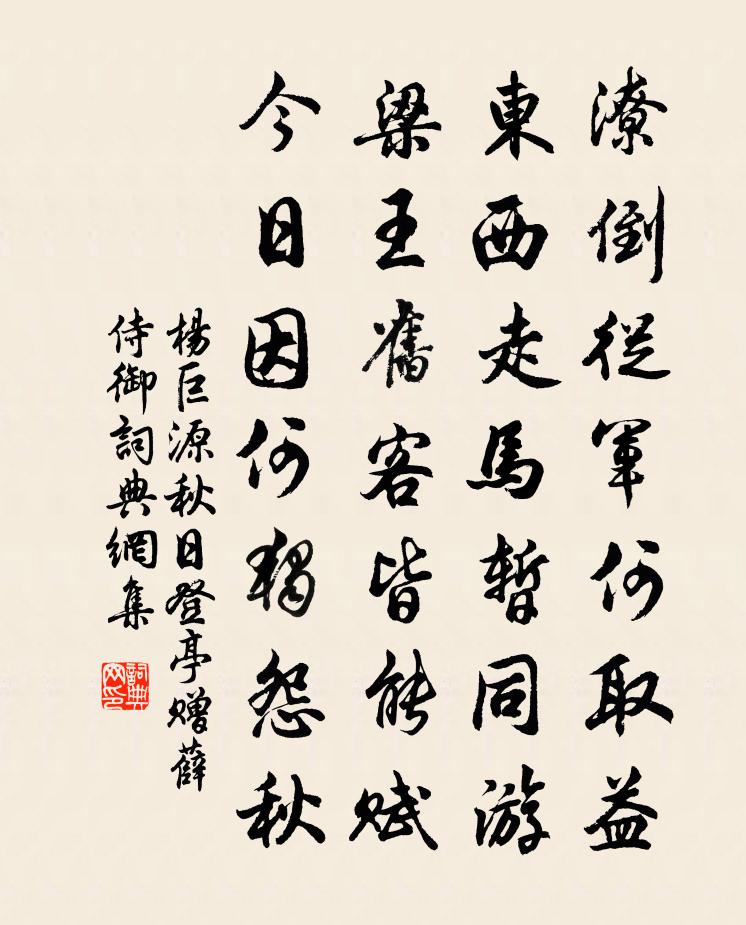 潦倒從軍何取益
東西走馬暫同游
梁王舊客皆能賦
今日因何獨怨秋
楊巨源秋日登亭贈薛
侍御詞典網集
詞典網印